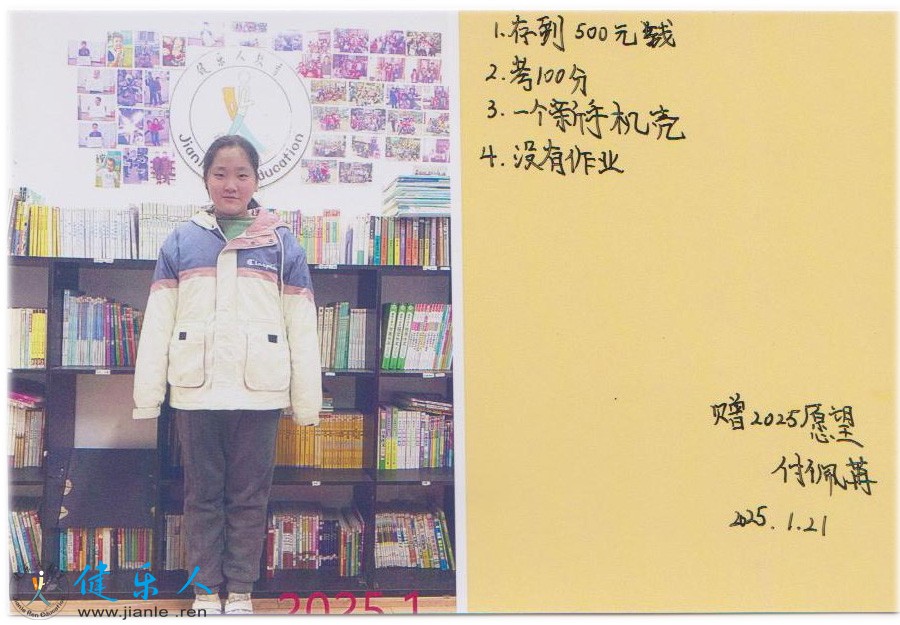 健乐人教育
Jianle Ren Education
Champion
1.存到500元钱
2.考100分
3.一个新手机壳
4.没有作业
赠2025愿望
付佩苒
2025.1.21
2025.1
健乐人
www.jianle .ren
Jianle Ren Education